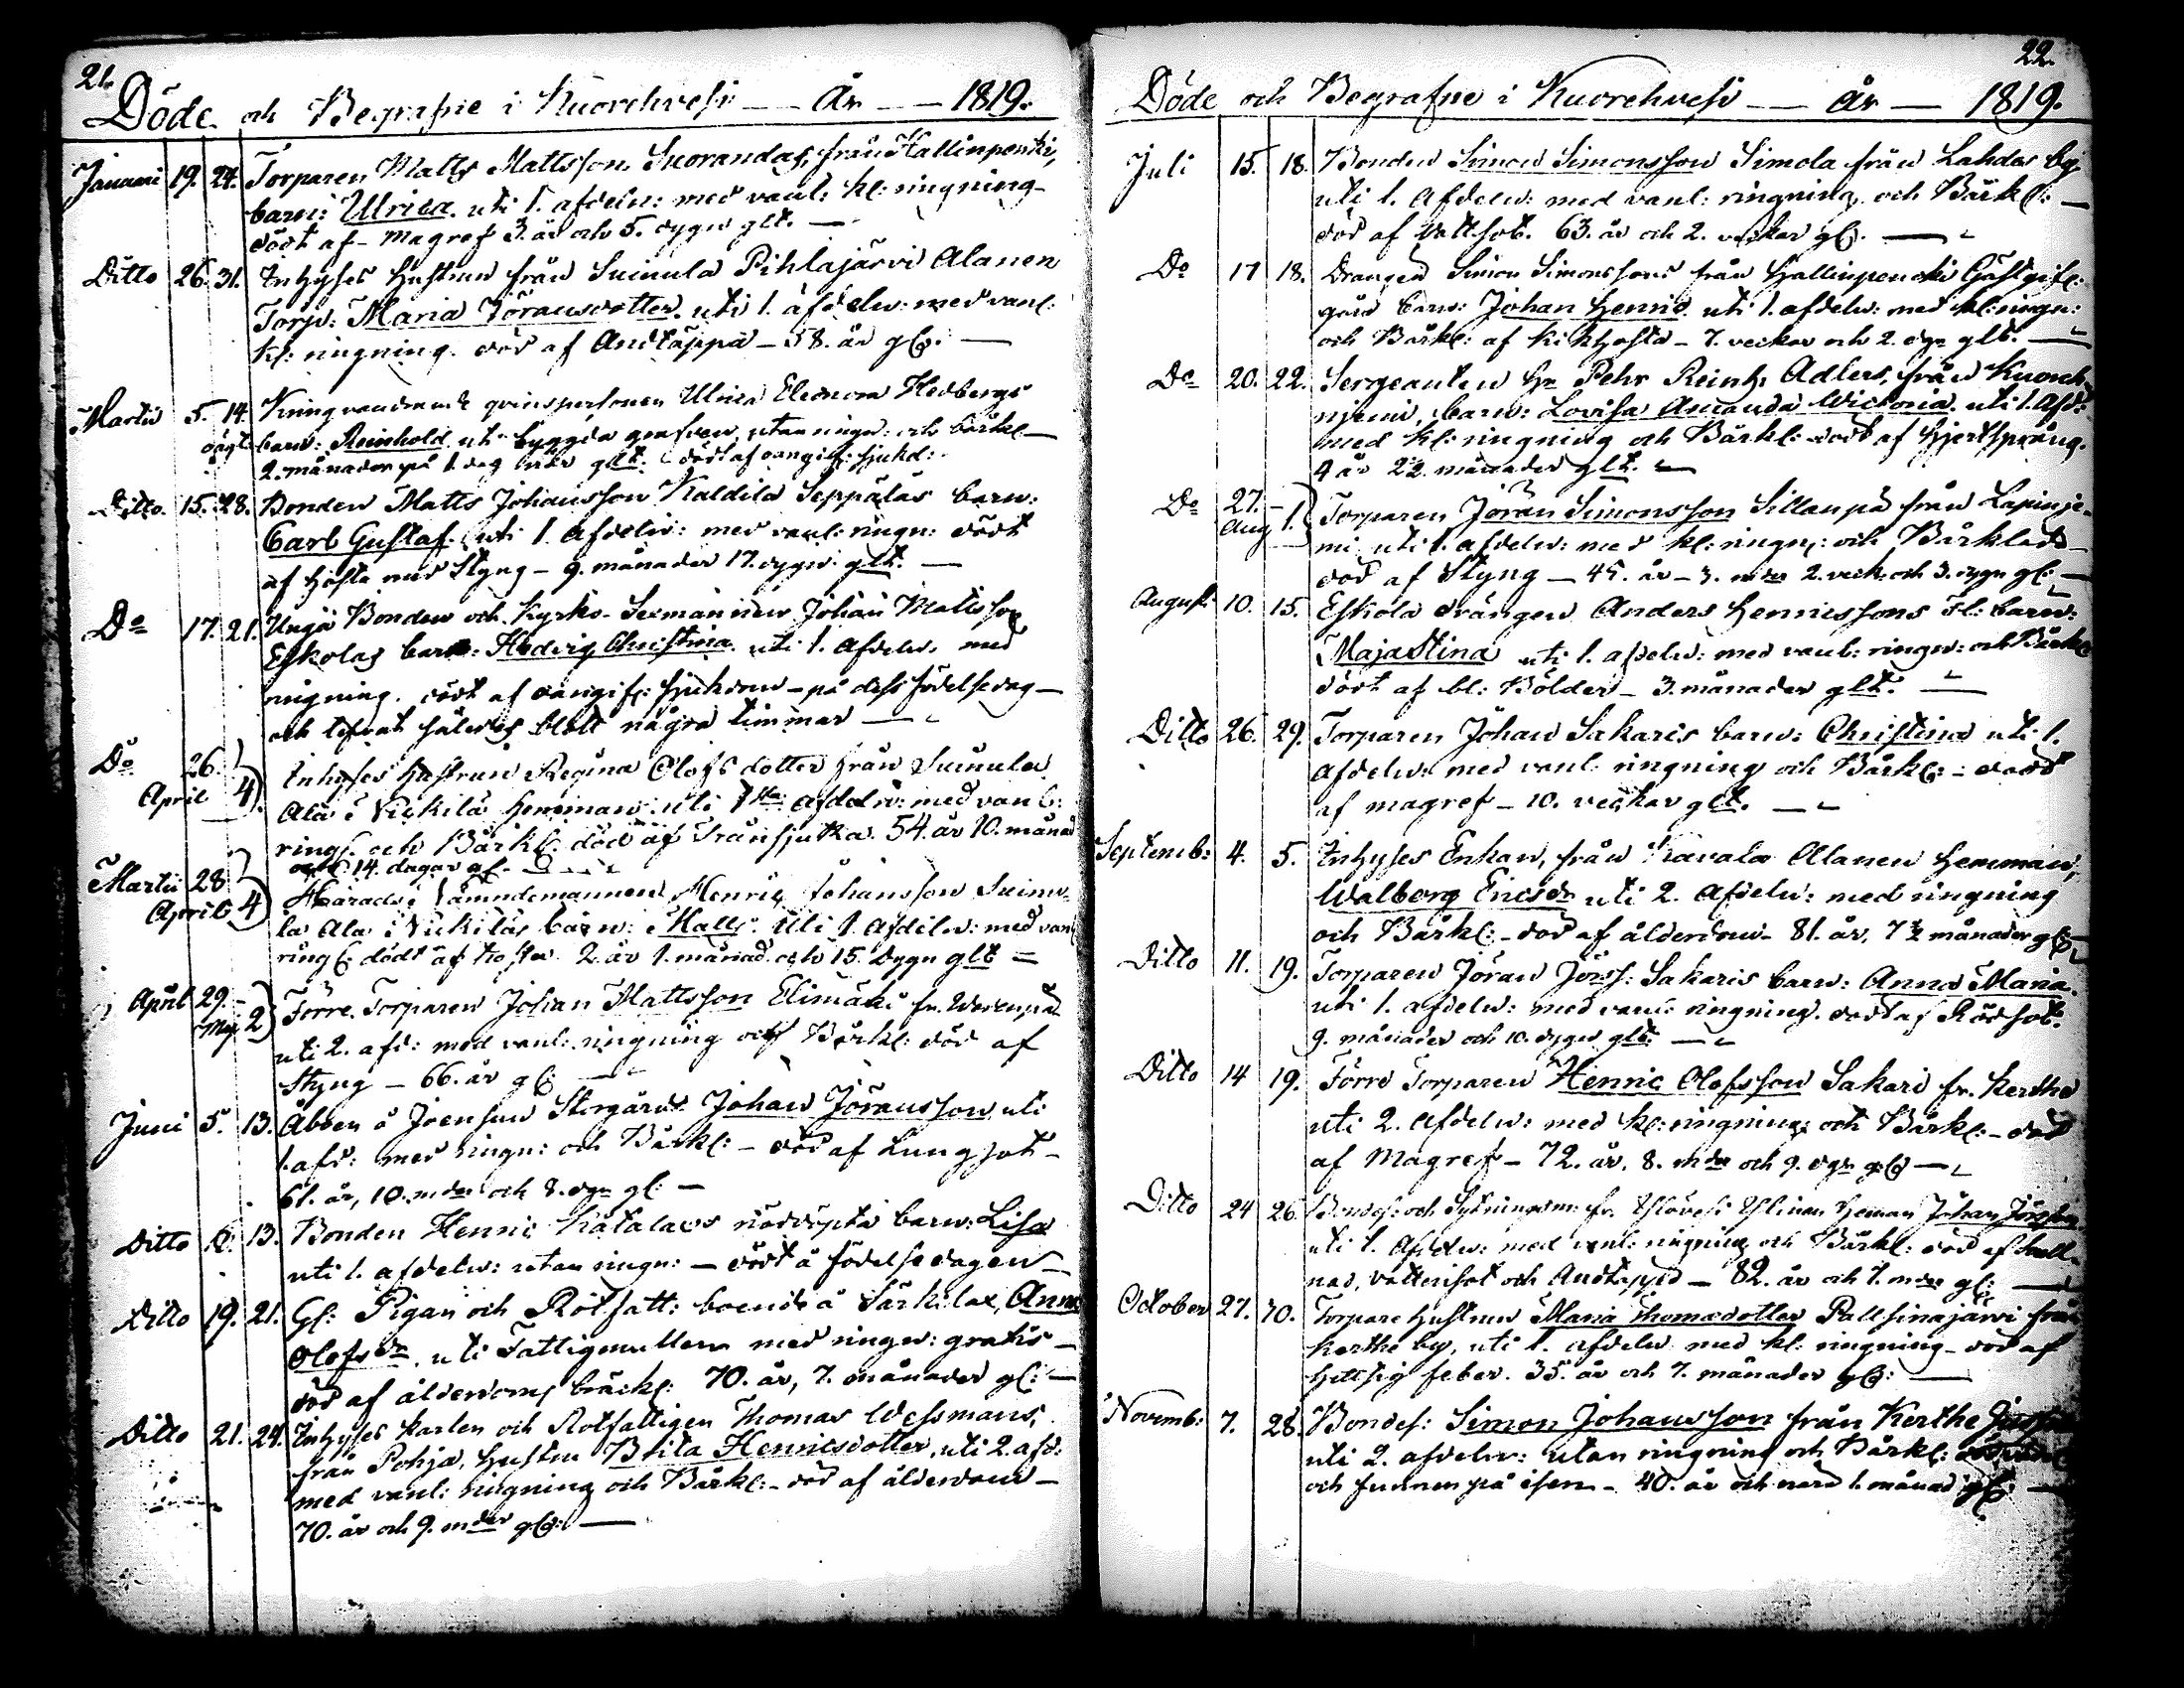 21.
Döde och Begrafne i Kuorehvesi — År — 1819.
Januari 19. 24. Torparen Matts Mattsson Suorandas, från Hallinpenki,
barn: Ulrica. uti 1. afdeln: med vanl: kl: ringning
dödt af Magref 3. år och 5. dygn glt. —
Ditto 26. 31. Inhyses Hustrun från Suinula Pihlajärvi Alanen
Torp: Maria Jöransdotter. uti 1. afdeln: med vanl:
kl: ringning. död af Andtäppa — 58. år gl: —
Martii 5. 14. Kringvandrande qvinspersonen Ulrica Eleonora Hedbergs
barn: Reinhold uti byggda grafven, utan ringn: och bårkl —
2. månader på 1. dag när glt: dödt af oangif: sjukd:
Ditto 15. 28. Bonden Matts Johansson Kaldila Seppäläs barn:
Carl Gustaf. uti 1. afdeln: med vanl: ringn: dödt
af Hosta med Styng — 9. månader 17. dygn. glt. —
Do 17. 21. Unga Bonden och Kyrko-Sexmannen Johan Matsson
Eskolas barn: Hedvig Christina uti 1. afdeln. med
ringning. dödt af oangif: sjukdom — på dess födelsedag —
och lefvat således blott några timmar —
Do 26. Inhyses Hustrun Regina Olofsdotter från Suinula
April 4). Ala i Nickilä Hemman. uti 1sta afdeln: med vanl:
ringn: och Bårkl: död af Trånsjuka. 54. år 10. månad
och 14. dagar gl. —
Martii 28 Härads Nämndemannen Henric Johansson Suinu-
April 4) la Ala i Nickiläs barn: Matts. uti 1. afdeln: med vanl
ring: dödt af hosta. 2. år 1. månad och 15. dygn glt —
April 29. Förre Torparen Johan Mattsson Elimäki fr. Werenpää
Maj 2) uti 2. afd: med vanl: ringning och Bårkl: död af
Styng — 66. år gl: —
Juni 5. 13. Åboen å Joensuu Storgård Johan Jöransson uti
1. afd: med ringn: och Bårkl: — död af Lungsot —
61. år, 10. mder och 8. dgr gl: —
Ditto 13. Bonden Henric Katalas nöddöpta barn: Lisa
uti 1. afdeln: utan ringn: — dödt å födelsedagen —
Ditto 19. 21. Gl: Pigan och Rotfatt: boende å Särkilax, Anna
Olofsdr, uti Fattigmullen med ringn: gratis —
död af ålderdoms bräckl: 70. år, 7. månader gl: —
Ditto 21. 24. Inhyses karlen och Rotfattigen Thomas Wessmans,
från Pohja, Hustru Brita Henricsdotter, uti 2. afd:
med vanl: ringning och Bårkl: — död af ålderdom —
70. år och 9. mder gl: —
22.
Döde och Begrafne i Kuorehvesi — År — 1819.
Juli 15. 18. Bonden Simon Simonsson Simola från Lahdes by
uti 1. afdeln: med vanl: ringning, och Bårkl: —
död af Vattsot. 63. år och 2. veckor gl. —
Do 17 18. Drängen Simon Simonssons från Hallinpencki Gästgif:
gård barn: Johan Henric uti 1. afdeln: med kl: ringn:
och Bårkl: af Kikhosta — 7. veckor och 2. dgr glt. —
Do 20. 22. Sergeanten Hr Pehr Reinh: Adlers, från Kuoreh-
niemi, barn: Lovisa Amanda Wictoria. uti 1. Afd:
med kl: ringning och Bårkl: dödt af Hjertsprång.
4 år 2. månader glt. —
Do 27. Torparen Jöran Simonsson Sillanpä från Lapinje-
Aug 1. mi uti 1. afdeln: med kl: ringn: och Bårkläde —
död af Styng — 45. år — 3. mder 2. veck: och 3. dygn gl: —
August: 10. 15. Eskola drängen Anders Henricssons Fl: barn:
Maja Stina uti 1. afdeln: med vanl: ringn: och Bårkl
dödt af bl: Bölder — 3. månader glt. —
Ditto 26. 29. Torparen Johan Sakaris barn: Christina uti 1.
afdeln: med vanl: ringning och Bårkl: — dödt
af magref — 10. veckor glt. —
Septemb: 4. 5. Inhyses Enkan, från Kavala Alanen Hemman,
Walborg Ericsdr uti 2. afdeln: med ringning
och Bårkl: — död af ålderdom — 81. år, 7½ månader gl: —
Ditto 11. 19. Torparen Jöran Jörss: Sakaris barn: Anna Maria.
uti 1. afdeln: med vanl: ringning. dödt af Rödsot.
9. månader och 10. dygn glt: —
Ditto 14 19. Förre Torparen Henric Olofsson Sakari fr. Kerthe
uti 2. afdeln: med kl: ringning och Bårkl: — död
af Magref — 72. år, 8. mder och 9. dgr gl —
Ditto 24 26. Bondes: och Sytningsm: fr. Heman Johan Jörsson
uti 1. Afdeln: med vanl: ringning och Bårkl: död af Svull-
nad, Vattensot och Andtäppa — 82. år och 7. mder gl: —
October 27. 30. Torpare Hustrun Maria Thomædotter Pallsinajärvi från
Kerthe by, uti 1. afdeln med kl: ringning — död af
Hettsig feber. 35. år och 7. månader gl: —
Novemb: 7. 28. Bondes: Simon Johansson från Kerthe
uti 2. afdeln: utan ringning och Bårkl:
och funnen på isen — 40. år och nära 1. månad gl: —